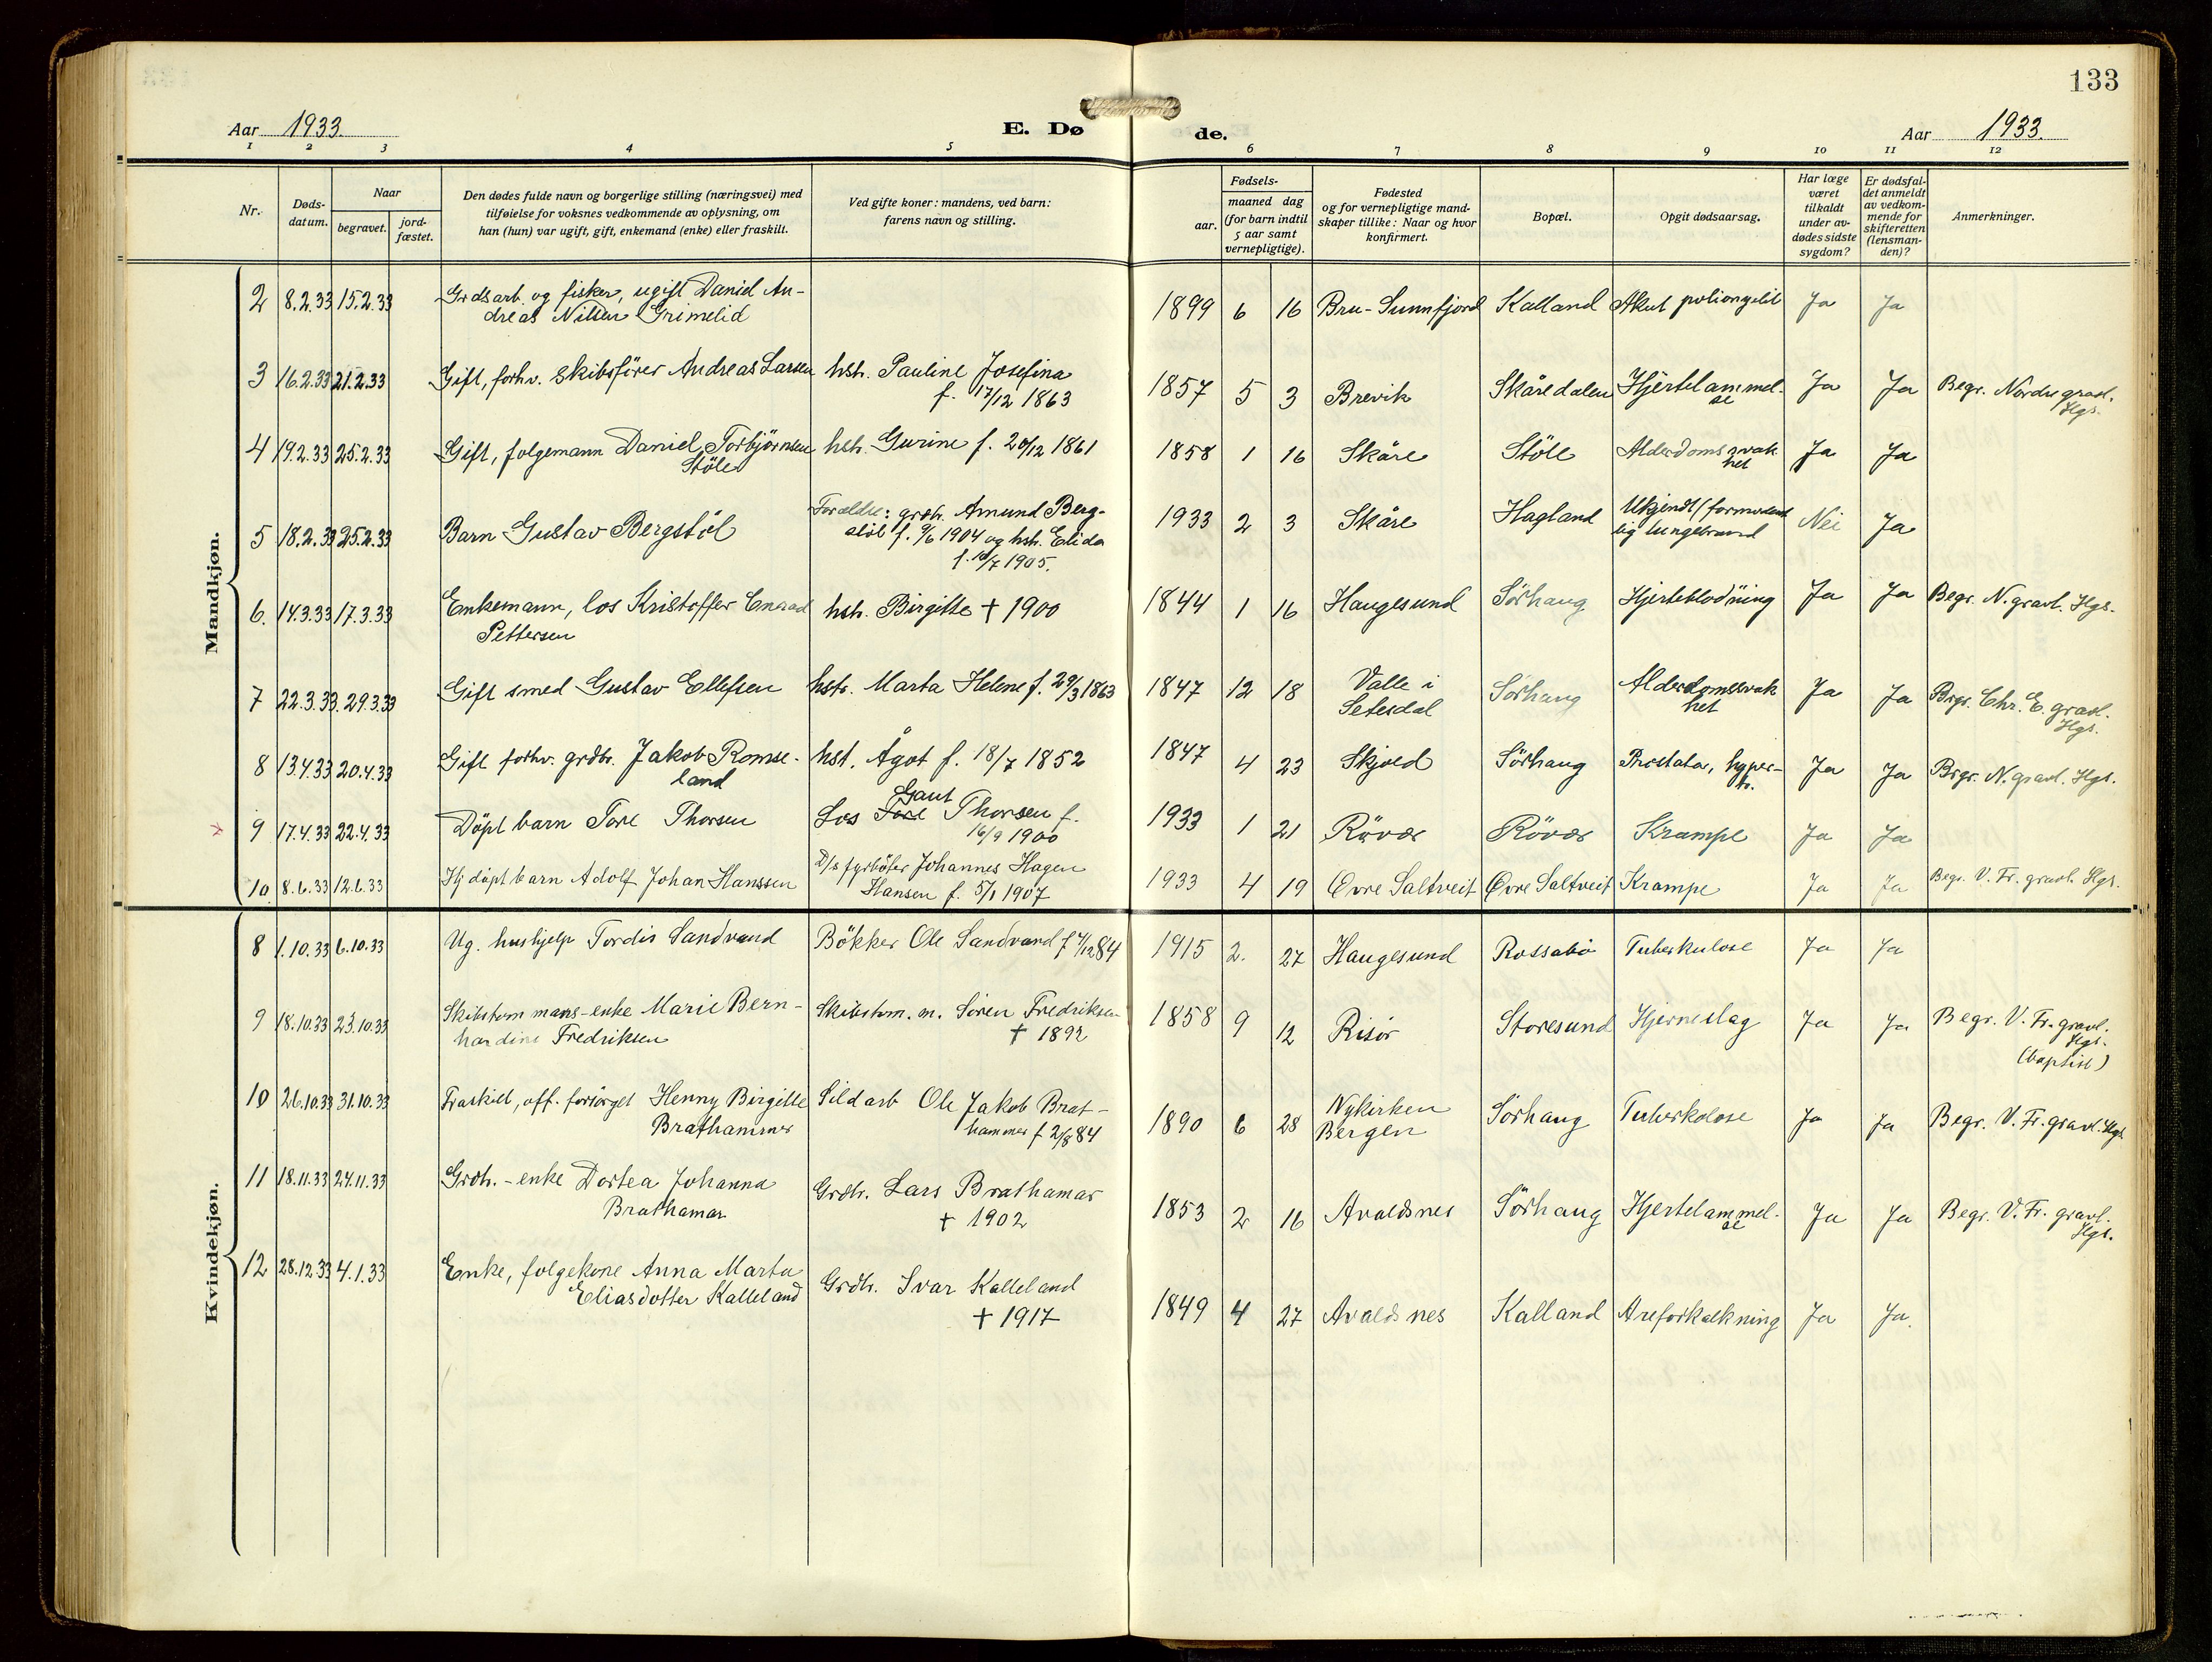 133
Aar 1933.
E. Dø
de.
Aar 1933.
1 2 3 4 5 6 7 8 9 10 11 12
Nr.
Døds-
datum.
Naar
begravet.
jord-
fæstet.
Den dødes fulde navn og borgerlige stilling (næringsvei) med
tilføielse for voksnes vedkommende av oplysning, om
han (hun) var ugift, gift, enkemand (enke) eller fraskilt.
Ved gifte koner: mandens, ved barn:
farens navn og stilling.
Fødsels-
aar.
maaned dag
(for barn indtil
5 aar samt
vernepligtige).
Fødested
og for vernepligtige mand-
skaper tillike: Naar og hvor
konfirmert.
Bopæl.
Opgit dødsaarsag.
Har læge
været
tilkaldt
under av-
dødes sidste
sygdom?
Er dødsfal-
det anmeldt
av vedkom-
mende for
skifteretten
(lensman-
den)?
Anmerkninger.
Mandkjøn.
2 8.2.33 15.2.33 Grdsarb. og fisker, ugift Daniel An-
dreas Nilsen Grimelid
1899 6 16 Bru-Sunnfjord Kalland Akut Ja Ja
3 16.2.33 21.2.33 Gift, forhv. skibsfører Andreas Larsen hstr. Pauline Josefina
f. 17/12 1863
1857 5 3 Brevik Skåredalen Hjertelammel-
se
Ja Ja Begr. Nordre gravl.
Hgs.
4 19.2.33 25.2.33 Gift, folgemann Daniel Torbjørnsen
Støle
hstr. Gurine f. 20/12 1861
1858 1 16 Skåre Støle Alderdomssvak
het
Ja Ja
5 18.2.33 25.2.33 Barn Gustav Bergstøl
Forældre: grdbr. Amund Berg-
støl f. 9/6 1904 og hstr. Elida
f. 10/7 1905.
1933 2 3 Skåre Hagland Ukjendt (formodent
lig lungebrand
Nei Ja
6. 14.3.33 17.3.33 Enkemann, los Kristoffer Conrad
Pettersen
hstr. Birgitte † 1900
1844 1 16 Haugesund Sørhaug Hjerteblødning Ja Ja Begr. N. gravl. Hgs.
7 22.3.33. 29.3.33 Gift smed Gustav Ellefsen hstr. Marta Helene f. 29/3 1863
1847 12 18 Valle i
Setesdal
Sørhaug Alderdomssvak
het
Ja Ja Begr. Chr. E. gravl.
Hgs.
8 13.4.33 20.4.33 Gift forhv. grdbr. Jakob Romse-
land
hst. Ågot f. 18/7 1852
1847 4 23 Skjold Sørhaug Prostata, hyper-
tr.
Ja Ja Begr. N. gravl. Hgs.
9 17.4.33 22.4.33 Døpt barn Tore Thorsen
Gaut
Los Tore Thorsen f.
16/9 1900
1933 1 21 Røvær Røvær Krampe Ja Ja
10 8.6.33 12.6.33 Hj døpt barn Adolf Johan Hanssen
D/s fyrbøter Johannes Hagen
Hansen f. 5/1 1907
1933 4 19 Øvre Saltveit Øvre Saltveit Krampe Ja Ja Begr. V. Fr. gravl. Hgs.
Kvindekjøn.
8 1.10.33 6.10.33 Ug. hushjelp Tordis Sandvand Bøkker Ole Sandvand f 4/12 84
1915 2. 27 Haugesund Rossabø Tuberkulose Ja Ja
9 18.10.33 23.10.33 Skibstømmans-enke Marie Bern-
hardine Fredriksen
Skibstøm.m. Søren Fredriksen
† 1892
1858 9 12 Risør Storesund Hjerneslag Ja Ja Begr. V. Fr. gravl.
Hgs.
(baptist)
10 26.10.33 31.10.33 Fraskilt, off. forsørget Henny Birgitte
Brathammer
Sildarb Ole Jakob Brat-
hammer f 2/8 84
1890 6 28 Nykirken
Bergen
Sørhaug Tuberkolose Ja Ja Begr. V. Fr. gravl. Hgs.
11 18.11.33 24.11.33 Grdbr.-enke Dortea Johanna
Brathamar
Grdbr. Lars Brathamar
† 1902
1853 2 16 Avaldsnes Sørhaug Hjertelammel-
se
Ja Ja Begr. V. Fr. gravl.
Hgs.
12 28.12.33 4.1.33 Enke, folgekone Anna Marta
Eliasdotter Kalleland
Grdbr. Ivar Kalleland
† 1917
1849 4 27 Avaldsnes Kalland Areforkalkning Ja Ja.